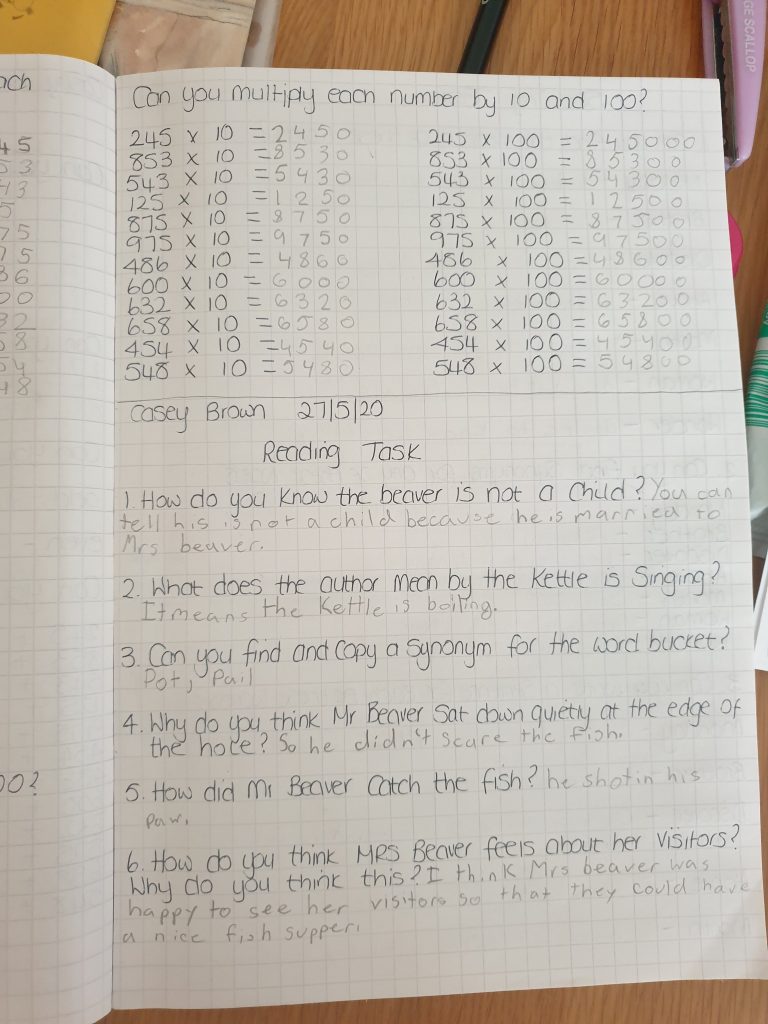 Can you multiply each number by 10 and 100?
245 x 10 = 2450
853 x 10 = 8530
543 x 10 = 5430
125 x 10 = 1250
875 x 10 = 8750
975 x 10 = 9750
486 x 10 = 4860
600 x 10 = 6000
632 x 10 = 6320
658 x 10 = 6580
454 x 10 = 4540
548 x 10 = 5480
245 x 100 = 245000
853 x 100 = 85300
543 x 100 = 54300
125 x 100 = 12500
875 x 100 = 87500
975 x 100 = 97500
486 x 100 = 48600
600 x 100 = 60000
632 x 100 = 63200
658 x 100 = 65800
454 x 100 = 45400
548 x 100 = 54800
Casey Brown 27/5/20
Reading Task
1. How do you know the beaver is not a child? You can
tell his is not a child because he is married to
Mrs beaver.
2. What does the author mean by the kettle is singing?
It means the kettle is boiling.
3. Can you find and copy a synonym for the word bucket?
Pot, Pail
4. Why do you think Mr Beaver sat down quietly at the edge of
the hole? So he didn't scare the fish.
5. How did Mr Beaver catch the fish? he shot in his
paw.
6. How do you think MRS Beaver feels about her visitors?
Why do you think this? I think Mrs beaver was
happy to see her visitors so that they could have
a nice fish supper.
GE SCALLOP